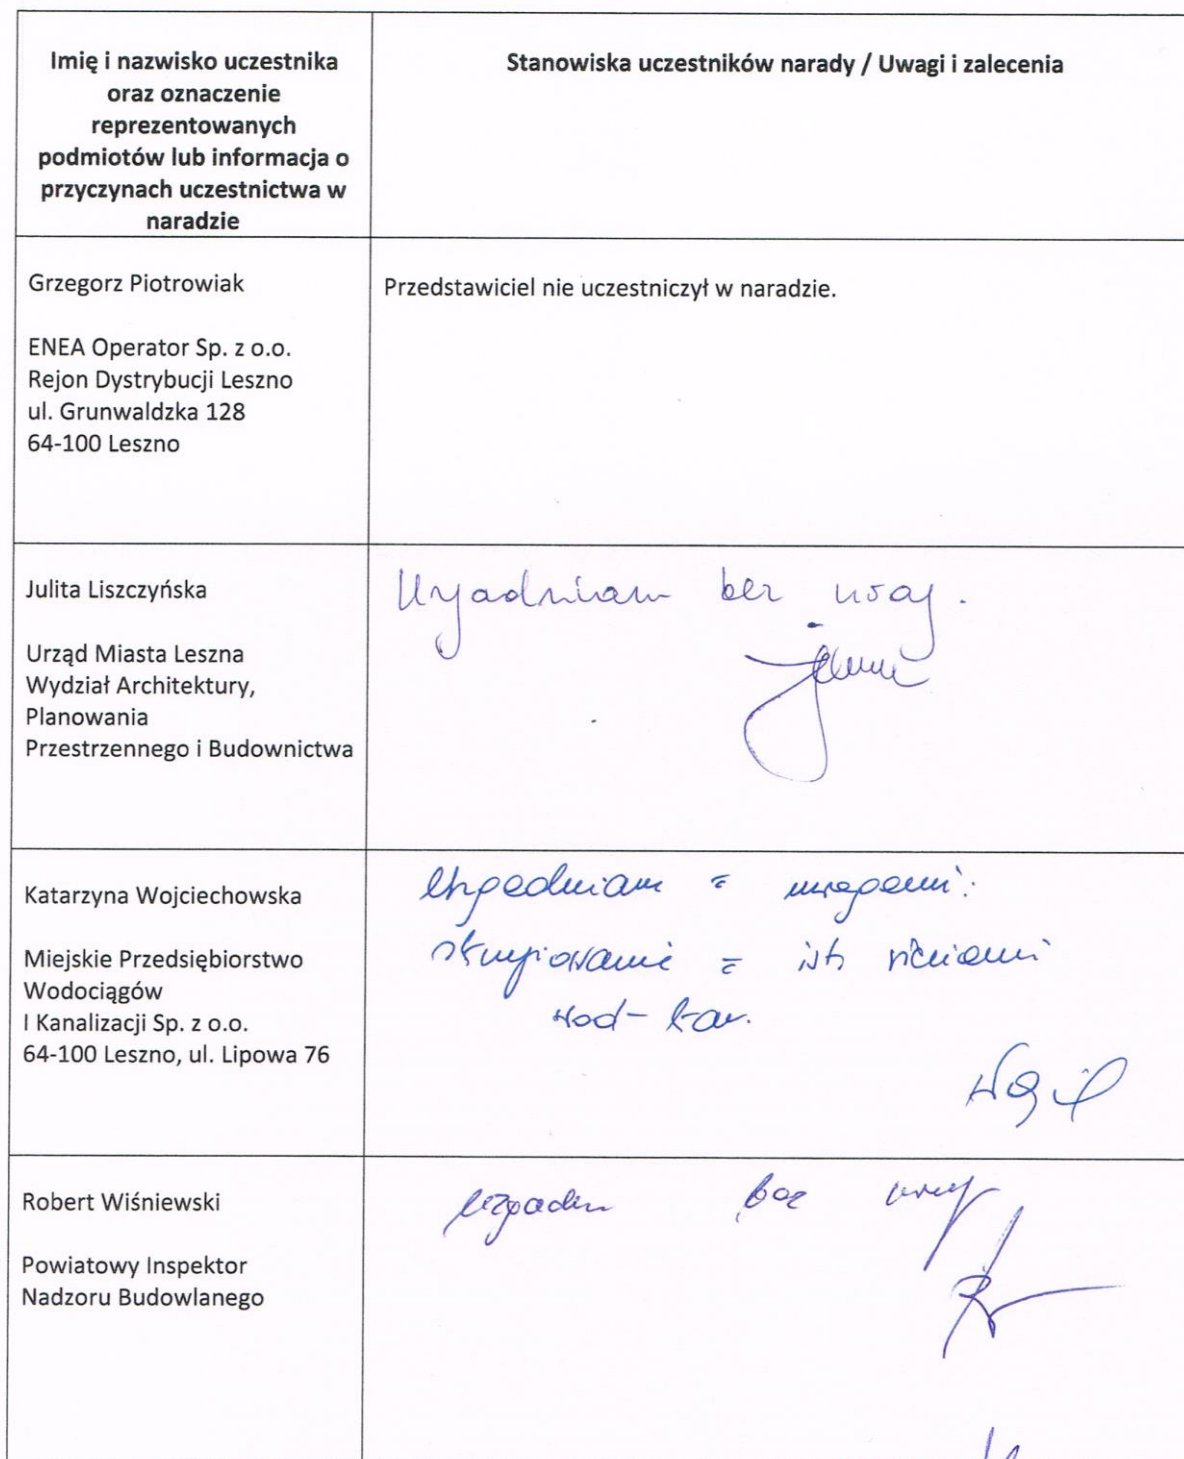 Imię i nazwisko uczestnika
oraz oznaczenie
reprezentowanych
podmiotów lub informacja o
przyczynach uczestnictwa w
naradzie
Stanowiska uczestników narady / Uwagi i zalecenia
Grzegorz Piotrowiak
ENEA Operator Sp. z o.o.
Rejon Dystrybucji Leszno
ul. Grunwaldzka 128
64-100 Leszno
Przedstawiciel nie uczestniczył w naradzie.
Julita Liszczyńska
Urząd Miasta Leszna
Wydział Architektury,
Planowania
Przestrzennego i Budownictwa
Uzgadniam bez uwag.
Katarzyna Wojciechowska
Miejskie Przedsiębiorstwo
Wodociągów
I Kanalizacji Sp. z o.o.
64-100 Leszno, ul. Lipowa 76
Uzgadniam z uwagami:
z ist. sieciami
wod-kan.
Robert Wiśniewski
Powiatowy Inspektor
Nadzoru Budowlanego
bez uwag